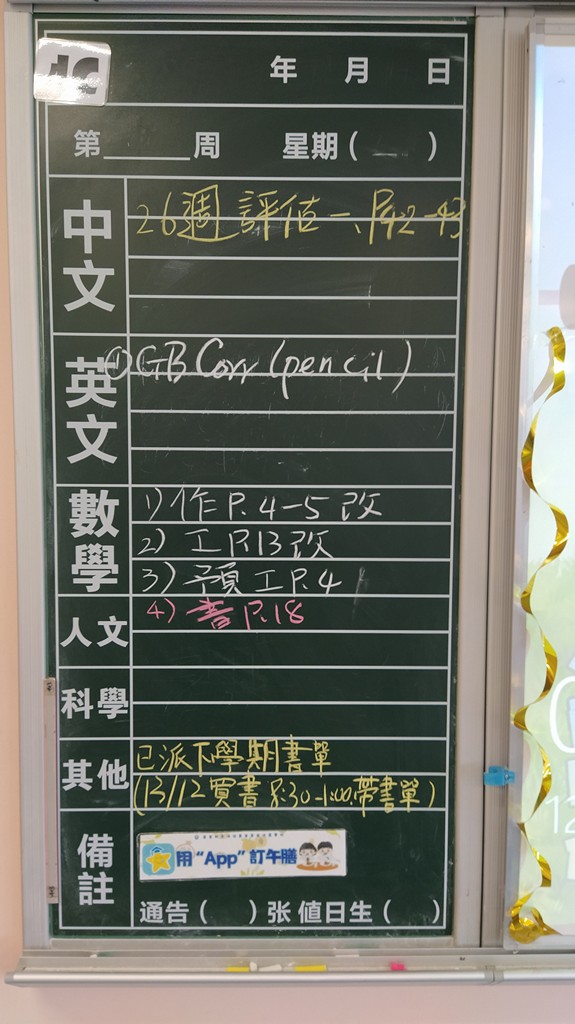 1C
年 月 日
第______周 星期( )
中文
26週 評估一、P.42-43
英文
①GB Corr (pencil)
數學
1) 作 P. 4-5 改
2) 工 P.13 改
3) 預工 P.4
4) 書 P.18
人文
科學
其他
已派下學期書單
(13/12買書 8:30-1:00,帶書單)
備註
用“App”訂午膳
通告( )张 值日生( )